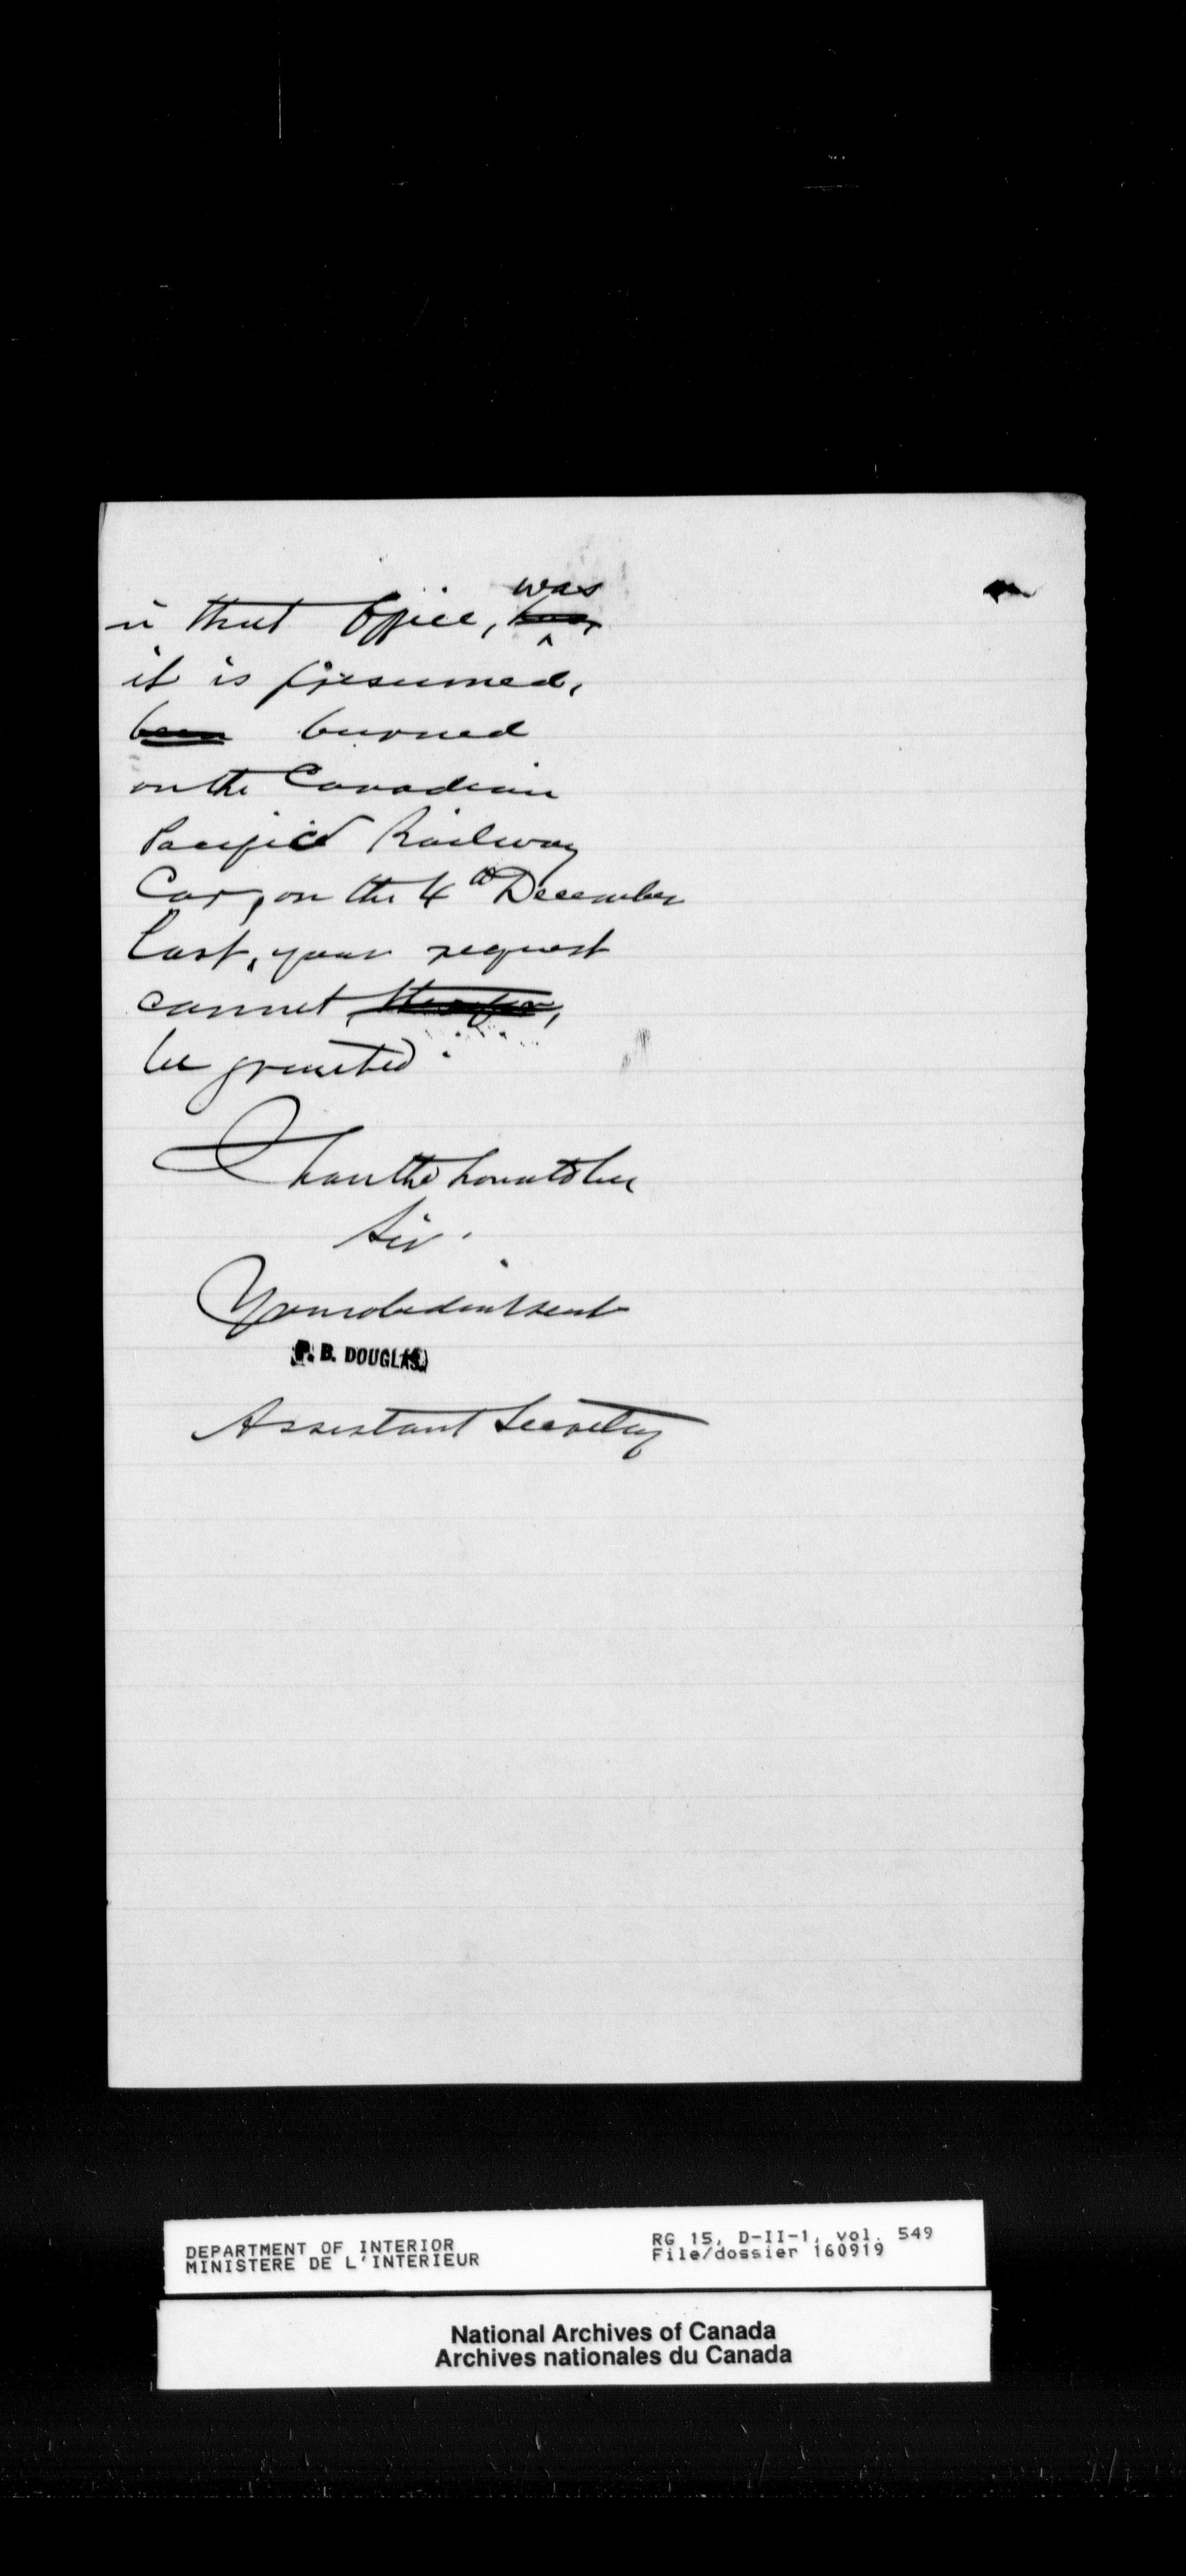 in that Office, was
it is presumed,
been burned
on the Canadian
Pacific Railway
Car, on the 4th December
last, your request
cannot therefore,
be granted.
I have the honor to be
Sir.
Your obedient servt
P. B. DOUGLAS.
Assistant Secretary
DEPARTMENT OF INTERIOR
MINISTERE DE L'INTERIEUR
RG 15, D-II-1, vol. 549
File/dossier 160919
National Archives of Canada
Archives nationales du Canada